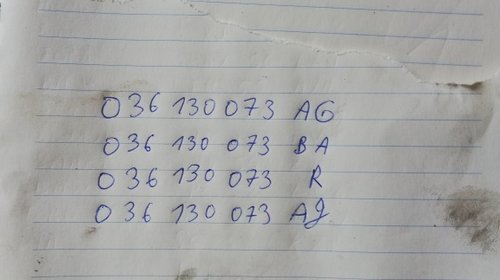 036 130 073 AG
036 130 073 BA
036 130 073 R
036 130 073 AJ